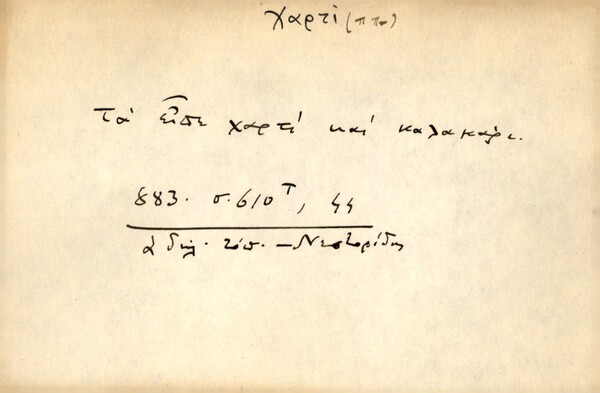 χαρτί (ππ)
Τά εἶπε χαρτί καί καλαμάρι.
883. σ. 610 Τ, 44
ἀ δηλ. τόπ. – Νεστορίδης